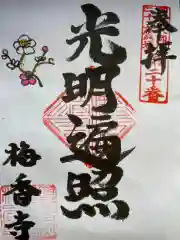 奉拝
二十番
光明遍照
梅香寺